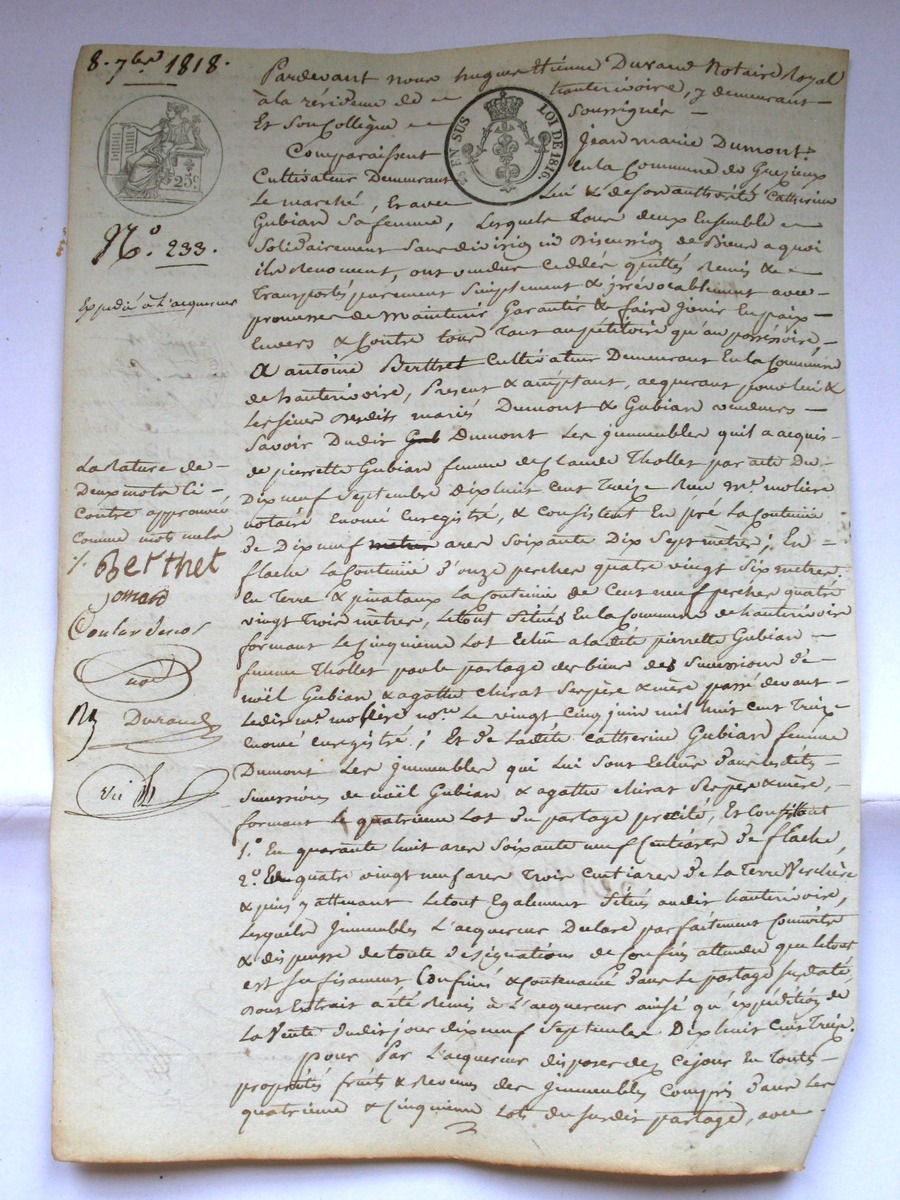 8. 7bre 1818.
Pardevant nous hugues Etienne Durand Notaire Royal
à la résidence de hauterivoire, y demeurant
Et Son Collègue Soussignés
25 EN SUS LOI DE 1816
25c
Comparaissent Jean marie Dumont
Cultivateur Demeurant En la Commune de Grezieux
Le marché, Et avec Lui & de Son authorité Catherine
Gubian Sa femme, Lesquels Tous deux Ensemble
Solidairement Sans division ni Discussion de Biens a quoi
ils Renoncent, ont vendus ceddés quittés Remis &
Transportés purement Simplement & irrévocablement avec
promesse de maintenir Garantir & faire Jouir En paix
Envers & Contre tous Tant au pétitoire qu'au possessoire,
A antoine Berthet Cultivateur Demeurant En la Commune
de hauterivoire, Présent & acceptant, acquerant pour lui &
Les Siens Desdits mariés Dumont & Gubian vendeurs
Savoir Dudit Gub Dumont Les jmmeubles qu'il a acquis
de pierrette Gubian femme de Claude Thollet par acte du
Dix neuf Septembre Dix huit Cent Treize Reçu Me. molière
notaire Enregistré, & Consistent En pré La Contenue
de Dix neuf metres ares Soixante Dix Sept mètres; En
flache La Contenüe d'onze perches quatre vingt Six metres
En Terre & pinataux La Contenue de Cent neuf perches quatre
vingt Trois mètres, Letout Situés En la Commune de hauterivoire
formant Le Cinquième Lot Echu a la dite pierrette Gubian
femme Thollet par le partage des biens des Successions de
noël Gubian & agathe chirat Ses père & mère passé devant
Ledit me. molière nore. Le vingt Cinq juin mil huit Cent Treize
Enregistré; Et de Ladite Catherine Gubian femme
Dumont Les jmmeubles qui Lui Sont Echus dans lesdites
Successions de noël Gubian & agathe chirat Ses père & mère,
formant Le quatrieme Lot du partage précité, Et Consistant
1.o En quarante huit ares Soixante neuf Centiares de flache,
2.o En quatre vingt neuf ares Trois Centiares de La Terre Verchère
& pins y attenant Letout Egalement Situés audit hauterivoire,
Lesquels Jmmeubles L'acquereur Declare parfaitement Connaitre
& dispense de toute désignations de Confins attendu que Letout
est Suffisament Confiné & Contenancé dans Le partage Susdaté,
dont Extrait a été Remis à L'acquereur ainsi qu'expédition de
La Vente dudit jour dix neuf Septembre Dix huit Cent Treize.
pour Par L'acquereur disposer dez Cejour En Toute
propriétés fruits & Revenus des Jmmeubles Compris dans Les
quatrieme & Cinquieme Lots du Susdit partage, avec
No. 233.
Expédié à L'acquereur
La Rature de
Deux mots Ci
Contre approuvée
Comme mots nuls
Berthet
Durand